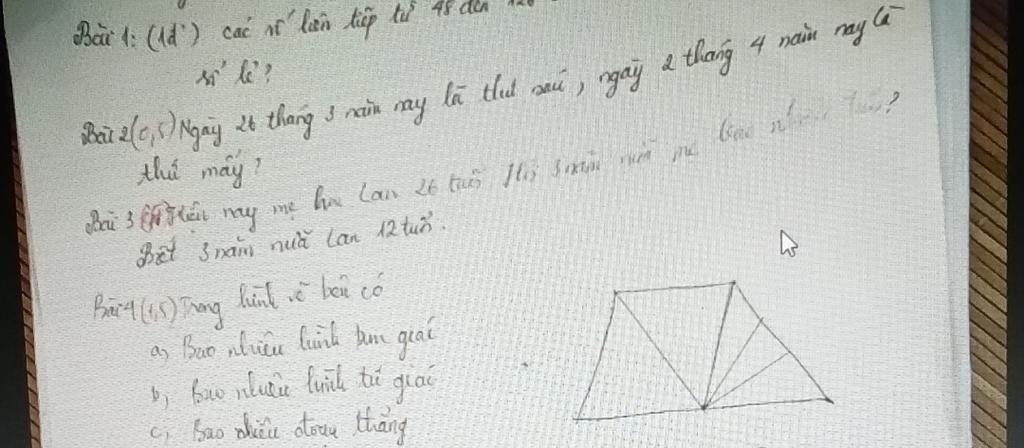 Bài 1: (1đ) các số liên tiếp từ 48 đến
số lẻ?
Bài 2 (0,5) Ngày 26 tháng 3 năm nay là thứ sáu, ngày 2 tháng 4 năm nay là
thứ mấy?
Bài 3 Hiện nay mẹ hơn Lan 26 tuổi Hỏi 3 năm nữa mẹ bao nhiêu tuổi?
Biết 3 năm nữa Lan 12 tuổi.
Bài 4 (1,5) Trong hình vẽ bên có
a) Bao nhiêu hình tam giác
b) Bao nhiêu hình tứ giác
c) Bao nhiêu đoạn thẳng